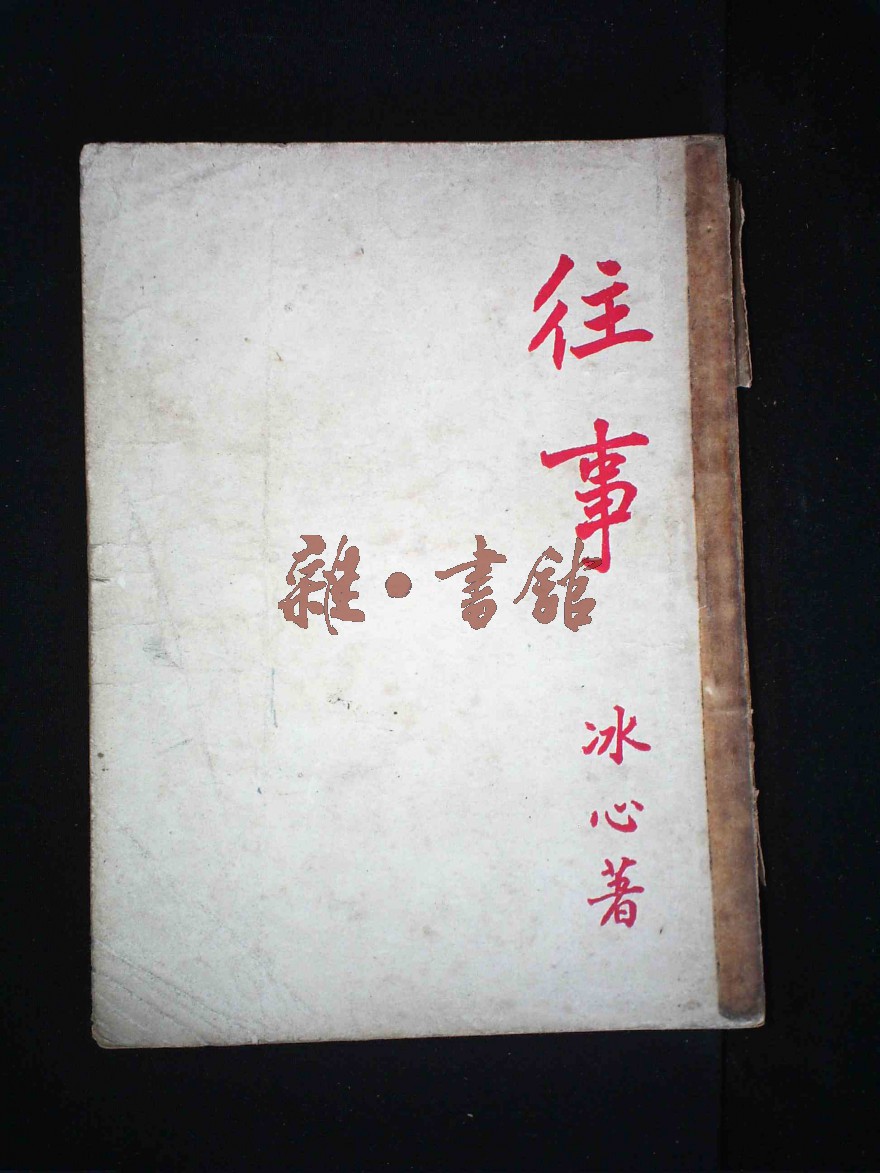 往事
冰心著
雜·書館